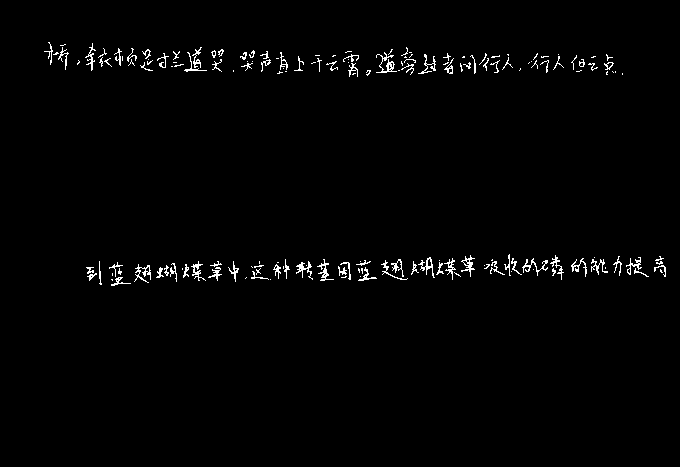 桥,牵衣顿足拦道哭.哭声直上干云霄。道旁过者问行人,行人但云点.
到蓝翅蝴蝶草中.这种转基因蓝翅蝴蝶草吸收的磷的能力提高